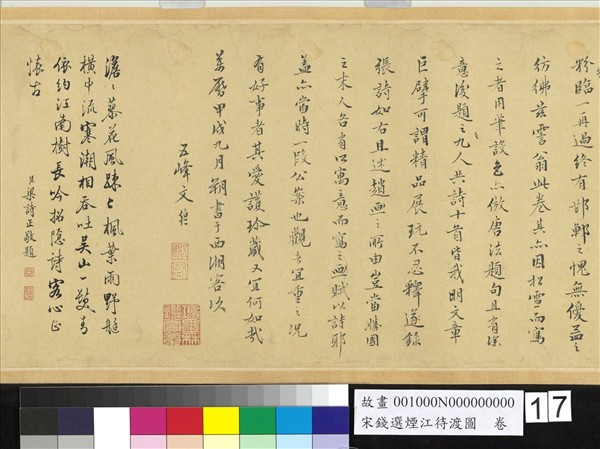 粉臨一再過終有邯鄲之愧無優孟之
彷彿茲霅翁此卷其亦因松雪而寫
之者用筆設色亦倣唐法題句且有深
意後題之九人共詩十首皆我明文章
巨擘可謂精品展玩不忍釋遂錄
張詩如右且述趙畫之所由豈當勝國
之末人各有所寓意而寫之畫賦以詩耶
蓋亦當時一段公案也觀者宜重之況
有好事者其愛護珍藏又宜何如哉
萬曆甲戌九月朔書于西湖客次
五峰文伯
濛濛蓼花風踈踈楓葉雨野艇
橫中流寒潮相吞吐吳山一鬟青
依約江南樹長吟招隱詩客心正
懷古
臣梁詩正敬題
故畫 001000N000000000
宋錢選煙江待渡圖 卷
17